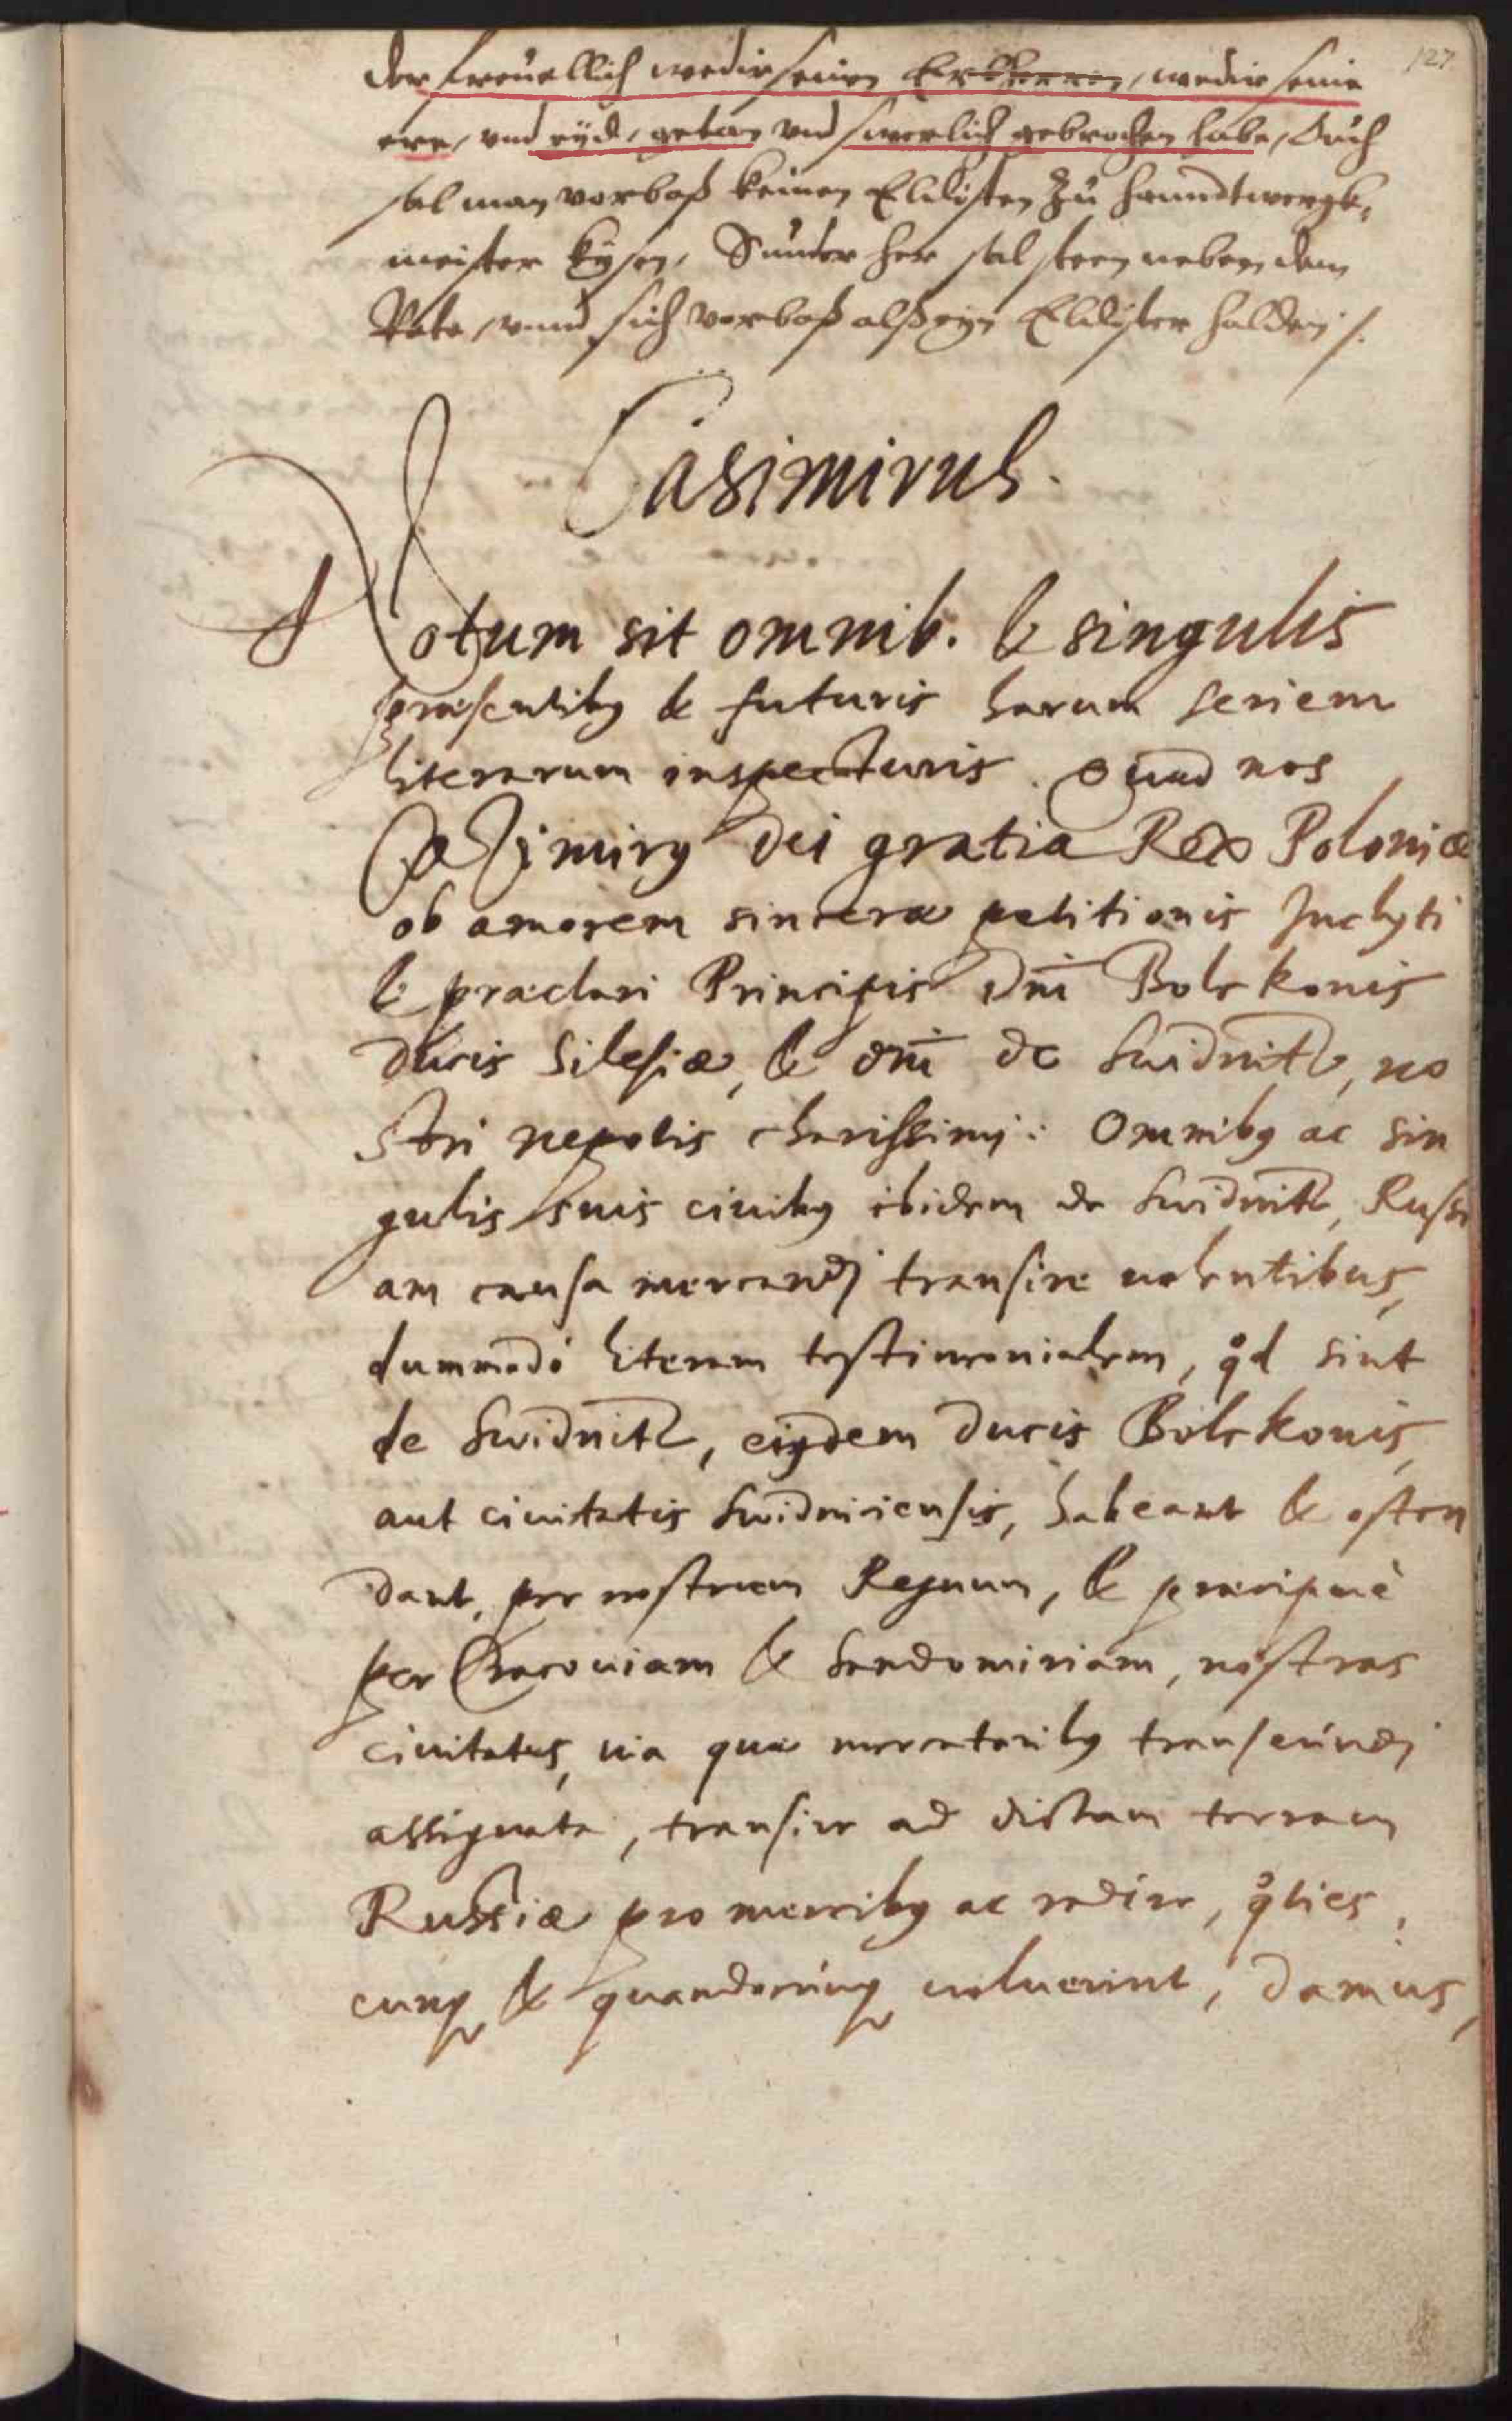 127
der freuellich wedir seinen Erbherren, wedir seine
ere, vnd eyde, getan vnd swerlich gebrochen habe, Auch
sal man vorbaß keinen Eldisten zu Hanndtwergk,
meister kysen, Sunder her sal steen neben dem
Rate, vnnd sich vorbaß alß eyn Eldister halden /.
Casimirus.
Notum sit omnib. & singulis
præsentibꝰ & futuris harum seriem
literarum inspecturis. Quod nos
Casimirꝰ Dei gratia Rex Poloniæ
ob amorem sinceræ petitionis Inclyti
& præclari Principis Dn̄i Bolkonis
ducis Silesiæ, & dn̄i de Swidnitz, no
stri nepotis charissimj: Omnibꝰ ac sin
gulis suis ciuibꝰ ibidem de Swidnitz, Russi
am causa mercandj transire uolentibus,
dummodò literam testimonialem, qd sint
de Swidnitz, eiꝰdem Ducis Bolkonis,
aut ciuitatis Swidniciensis, habeant & osten
dant, per nostrum Regnum, & præcipuè
per Cracouiam & Sandomiriam, nostras
ciuitates, uia quæ mercatoribꝰ transeundj
assignata, transire ad dictam terram
Russiæ pro mercibꝰ ac redire, qties,
cunqꝫ & quandocunqꝫ uoluerint, Damus,